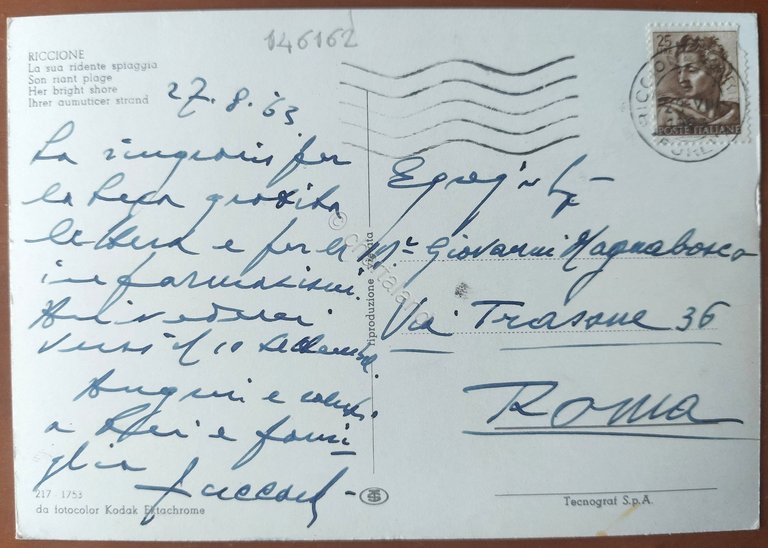 146162
RICCIONE
La sua ridente spiaggia
Son riant plage
Her bright shore
Ihrer aumuticer strand
27.8.63
La ringrazio per
la Sua gradita
lettera e per le
informazioni.
Arrivederci
verso il 10 settembre.
Auguri e saluti
a Lei e fami
glia
25
POSTE ITALIANE
RICCIONE
Giovanni Magnabosco
Via Trasone 36
Roma
riproduzione vietata
217 1753
da fotocolor Kodak Ektachrome
Tecnograf S.p.A.